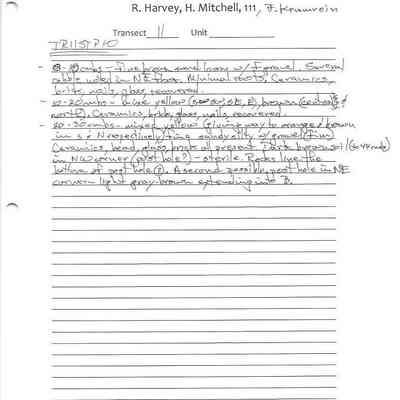 R. Harvey, H. Mitchell, 111, F. Kraumrein
Transect 11 Unit
TR11STP10
- 0-10cmbs - Fine brown sandy loam w/ gravel. Several
cobble noted in NE floor. Minimal roots, Ceramics,
brick, nails, glass recovered.
- 10-20cmbs - yellow brown
north). Ceramics, brick, glass, nails recovered.
- 20-30cmbs - mixed yellow giving way to orange & brown
in S & N respectively, fine sandy silty w/ gravel (fine)
Ceramics, bead, glass, brick all present. Dark brown soil
in NW corner (post hole?) - sterile. Rocks line the
bottom of post hole (?). A second possible post hole in NE
corner light gray-brown extending into B.